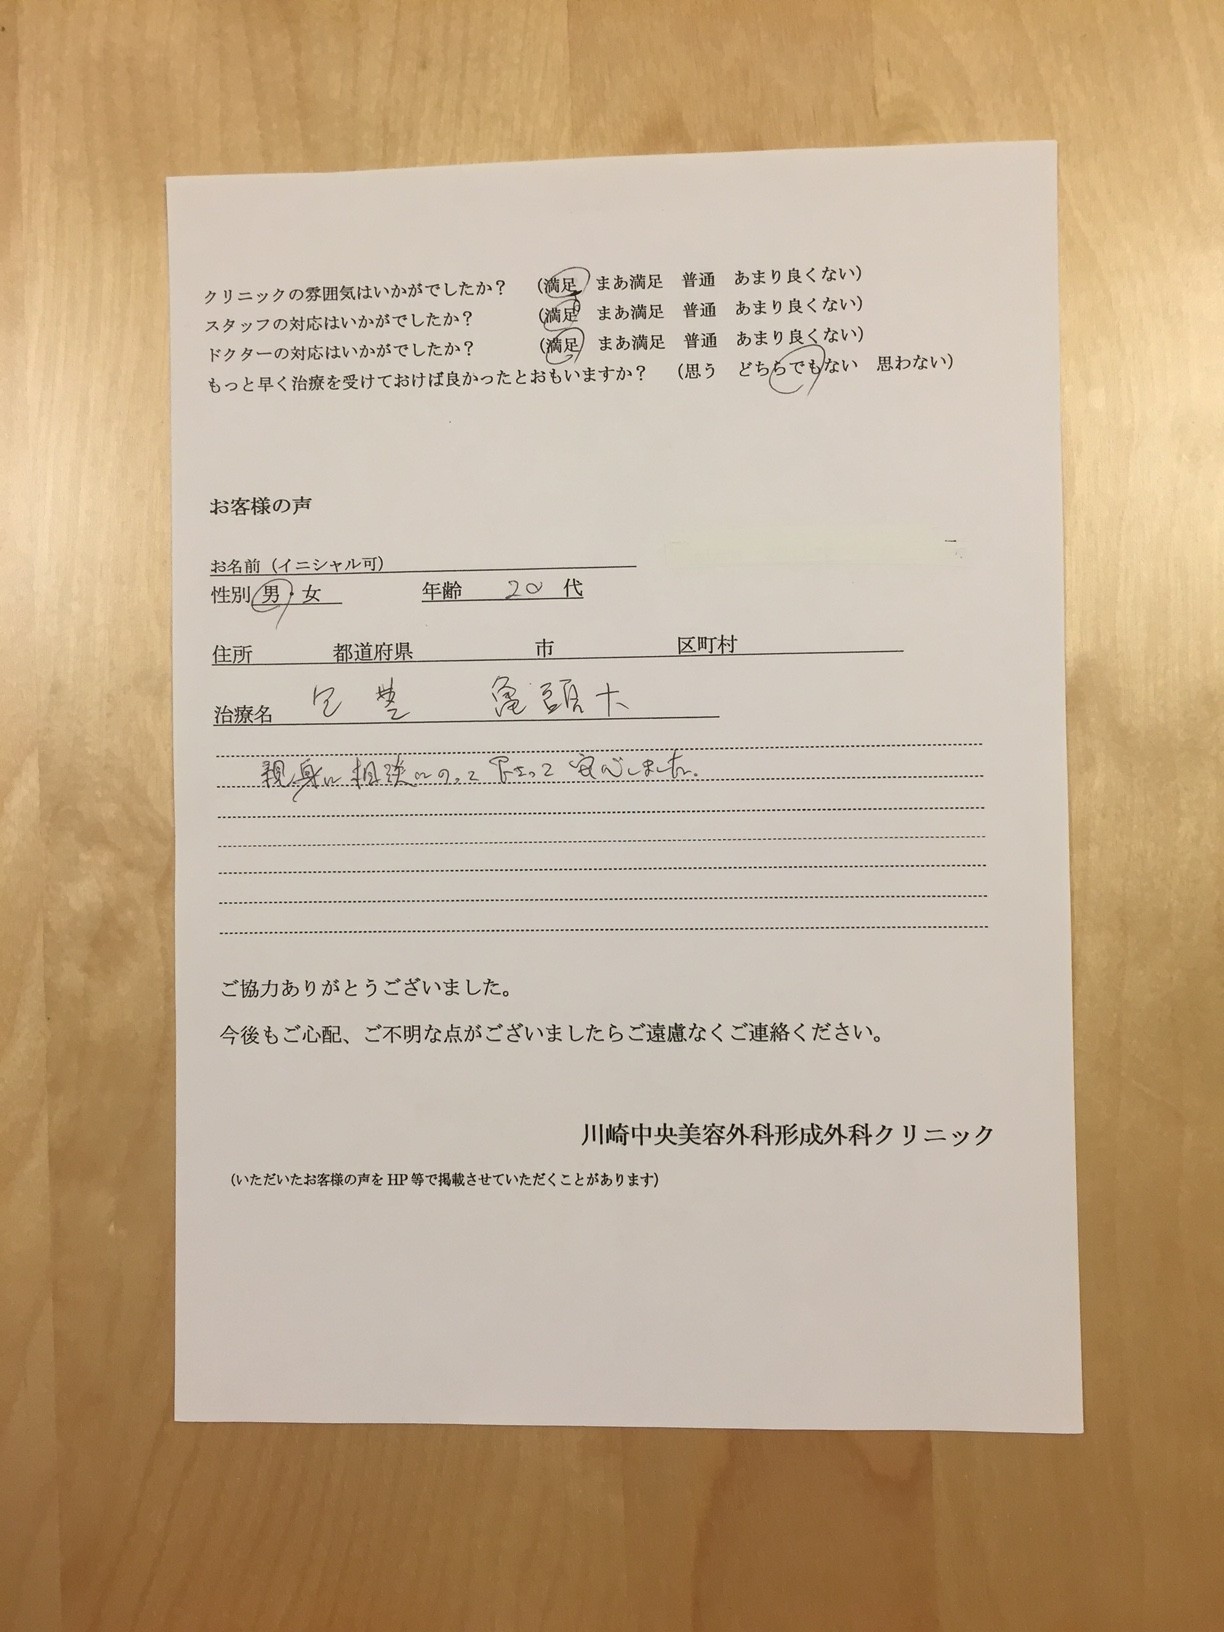 クリニックの雰囲気はいかがでしたか？　（満足　まあ満足　普通　あまり良くない）
スタッフの対応はいかがでしたか？　（満足　まあ満足　普通　あまり良くない）
ドクターの対応はいかがでしたか？　（満足　まあ満足　普通　あまり良くない）
もっと早く治療を受けておけば良かったとおもいますか？　（思う　どちらでもない　思わない）
お客様の声
お名前（イニシャル可）
性別　男・女　年齢　20　代
住所　都道府県　市　区町村
治療名　包茎　亀頭大
親身に相談にのって下さって安心しました。
ご協力ありがとうございました。
今後もご心配、ご不明な点がございましたらご遠慮なくご連絡ください。
川崎中央美容外科形成外科クリニック
（いただいたお客様の声を HP 等で掲載させていただくことがあります）